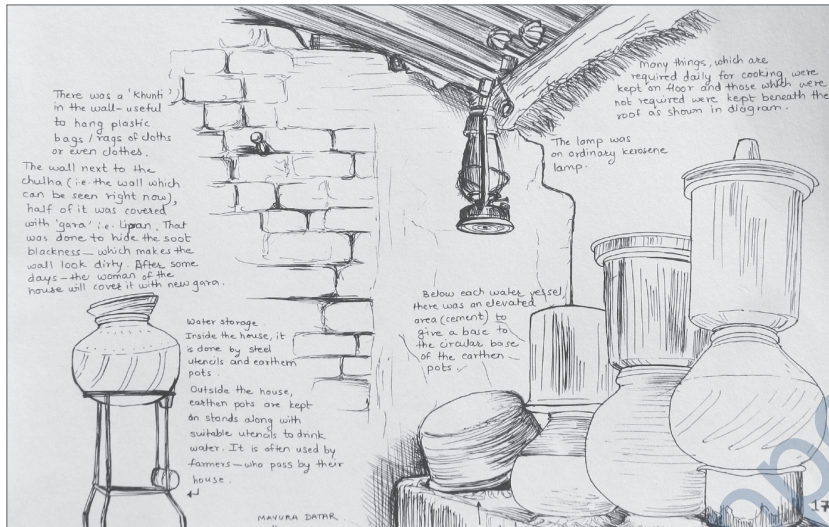 There was a 'khunti'
in the wall - useful
to hang plastic
bags / rags of cloths
or even clothes.
The wall next to the
chulha (i.e. the wall which
can be seen right now),
half of it was covered
with 'gara' i.e. Lipan. That
was done to hide the soot
blackness — which makes the
wall look dirty. After some
days — the woman of the
house will cover it with new gara.
Many things, which are
required daily for cooking were
kept on floor and those which were
not required were kept beneath the
roof as shown in diagram.
The lamp was
an ordinary kerosene
lamp.
Below each water vessel,
there was an elevated
area (cement) to
give a base to
the circular base
of the earthen
pots
Water storage
Inside the house, it
is done by steel
utencils and earthern
pots.
Outside the house,
earthen pots are kept
on stands along with
suitable utencils to drink
water. It is often used by
farmers — who pass by their
house.
MAYURA DATAR
17